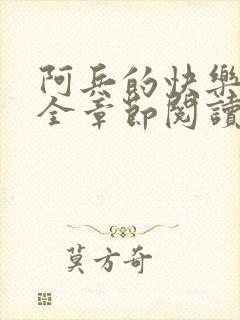 阿兵的快樂
全章節閱讀
莫方奇